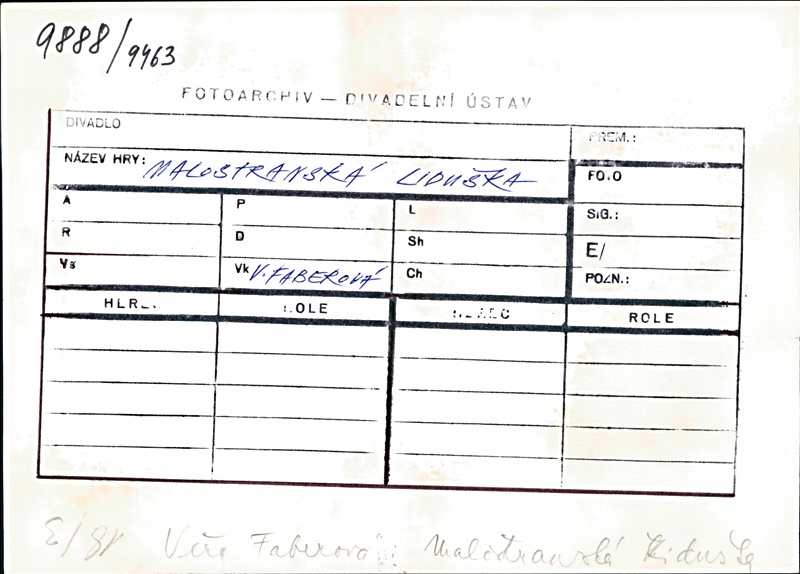 9888/9463
FOTOARCHIV — DIVADELNÍ ÚSTAV
DIVADLO
PREM.:
NÁZEV HRY: MALOSTRANSKÁ LIDUŠKA
FOTO
A P L SIG.:
R D Sh E/
Vs Vk V. FABEROVÁ Ch POZN.:
HEREC ROLE HEREC ROLE
E/81 Věra Faberová: Malostranská Liduška